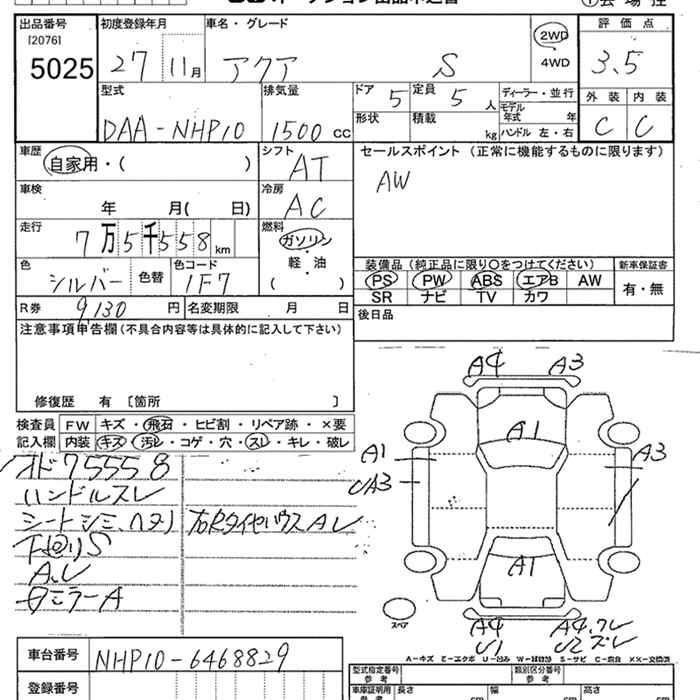 出品番号 初度登録年月 車名・グレード 評価点
[2076]
5025 27 11月 アクア S 2WD 4WD 3.5
型式 排気量 ドア 5 定員 5人 ディーラー・並行 外装 内装
DAA-NHP10 1500cc 形状 積載 kg モデル年式 年 ハンドル 左・右 C C
車歴 自家用・( ) シフト AT セールスポイント (正常に機能するものに限ります)
車検 年 月( 日) 冷房 AC AW
走行 7万5千558km 燃料 ガソリン・軽・油 ( )
色 シルバー 色替 色コード 1F7 装備品(純正品に限り○をつけてください) 新車保証書
PS PW ABS エアB AW 有・無
SR ナビ TV カワ
R券 9,130円 名変期限 月 日 後日品
注意事項申告欄(不具合内容等は具体的に記入して下さい)
修復歴 有 [箇所 ]
検査員 FW キズ・飛石・ヒビ割・リペア跡・×要
記入欄 内装 キズ・汚レ・コゲ・穴・スレ・キレ・破レ
オド75558
ハンドルスレ
シートシミ、ヘタリ 右Rタイヤハウス A レ
下回りS
A.レ
ミラーA
A4 A3
A1
A1 A3
UA3
A1
A4 A4.クレ
U1 U2 ズレ
スペア
A-キズ E-エクボ U-凹み W-補修跡 S-サビ C-腐食 XX-交換済
車台番号 NHP10-6468829
型式指定番号 参考 類別区分番号 参考
登録番号 車庫証明用 参考 長さ cm 幅 cm 高さ cm